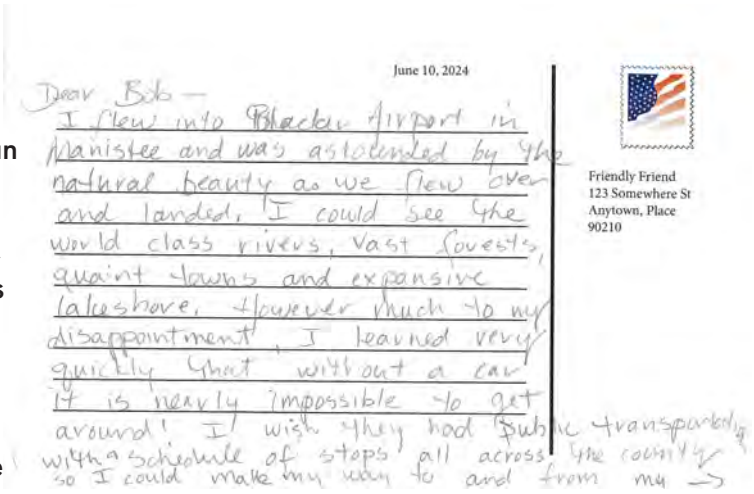 un
s
e
June 10, 2024
Dear Bob —
I flew into Blacker Airport in
Manistee and was astounded by the
natural beauty as we flew over
and landed. I could see the
world class rivers, vast forests,
quaint towns and expansive
lakeshore. However much to my
disappointment, I learned very
quickly that without a car
it is nearly impossible to get
around! I wish they had public transportation
with a schedule of stops all across the county
so I could make my way to and from my →
Friendly Friend
123 Somewhere St
Anytown, Place
90210